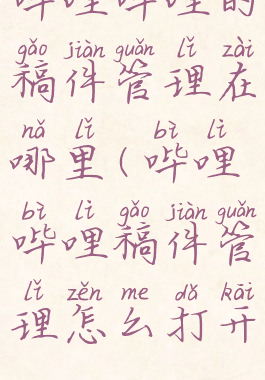 哔哩哔哩的
gǎo jiàn guǎn lǐ zài
稿件管理在
nǎ lǐ bì lì
哪里(哔哩
bì lì gǎo jiàn guǎn
哔哩稿件管
lǐ zěn me dǎ kāi
理怎么打开